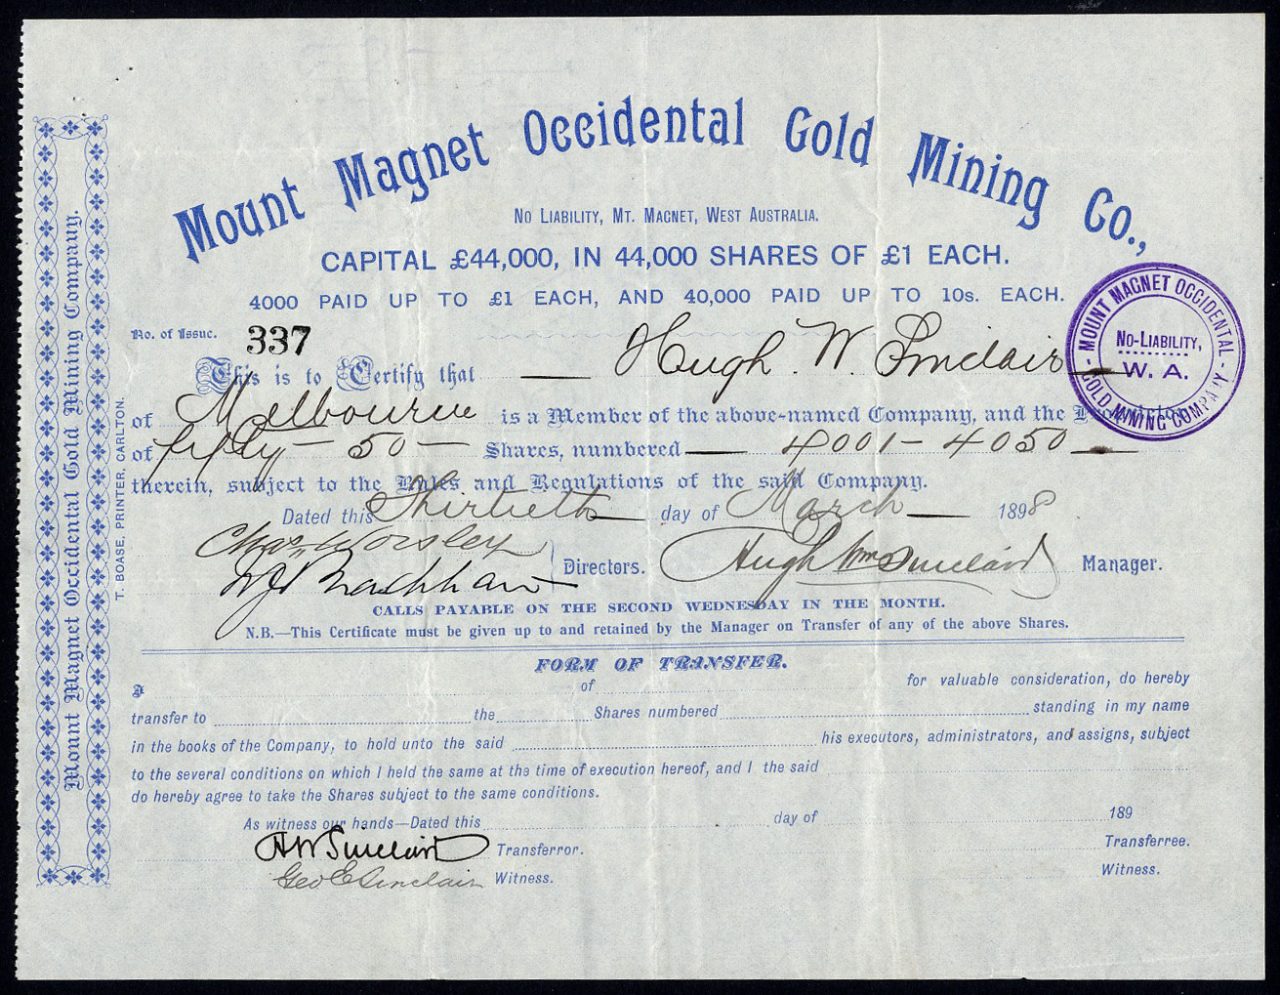 Mount Magnet Occidental Gold Mining Co.,
No Liability, Mt. Magnet, West Australia.
CAPITAL £44,000, IN 44,000 SHARES OF £1 EACH.
4000 PAID UP TO £1 EACH, AND 40,000 PAID UP TO 10s. EACH.
No. of Issue. 337
This is to Certify that Hugh. W. Sinclair
of Melbourne is a Member of the above-named Company, and the Proprietor
of fifty - 50 - Shares, numbered 4001 - 4050
therein, subject to the Rules and Regulations of the said Company.
Dated this Thirtieth day of March 1898
Chas. Worsley
Directors. Hugh Wm Sinclair Manager.
CALLS PAYABLE ON THE SECOND WEDNESDAY IN THE MONTH.
N.B.—This Certificate must be given up to and retained by the Manager on Transfer of any of the above Shares.
FORM OF TRANSFER.
I of for valuable consideration, do hereby
transfer to the Shares numbered standing in my name
in the books of the Company, to hold unto the said his executors, administrators, and assigns, subject
to the several conditions on which I held the same at the time of execution hereof, and I the said
do hereby agree to take the Shares subject to the same conditions.
As witness our hands—Dated this day of 189
H W Sinclair Transferror. Transferree.
Geo E Sinclair Witness. Witness.
Mount Magnet Occidental Gold Mining Company.
T. BOASE, PRINTER, CARLTON.
MOUNT MAGNET OCCIDENTAL
GOLD MINING COMPANY
NO-LIABILITY,
W. A.